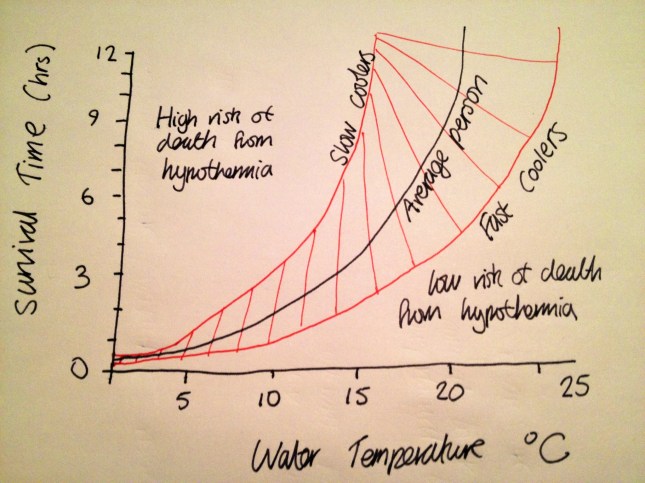 Survival Time (hrs)
12
9
6
3
0
High risk of
death from
hypothermia
Slow coolers
Average person
Fast coolers
low risk of death
from hypothermia
5 10 15 20 25
Water Temperature °C